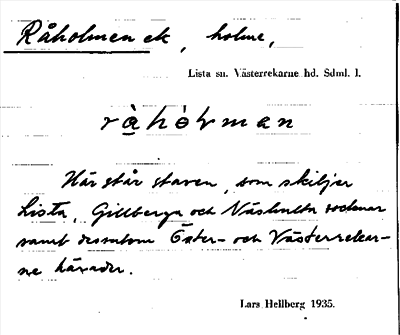 Råholmen ek, holme,
Lista sn. Västerrekarne hd. Sdml. l.
råhòlman
Här står staven, som skiljer
Lista, Gillberga och Näshulta socknar
samt dessutom Öster- och Västerrekar-
ne härader.
Lars Hellberg 1935.